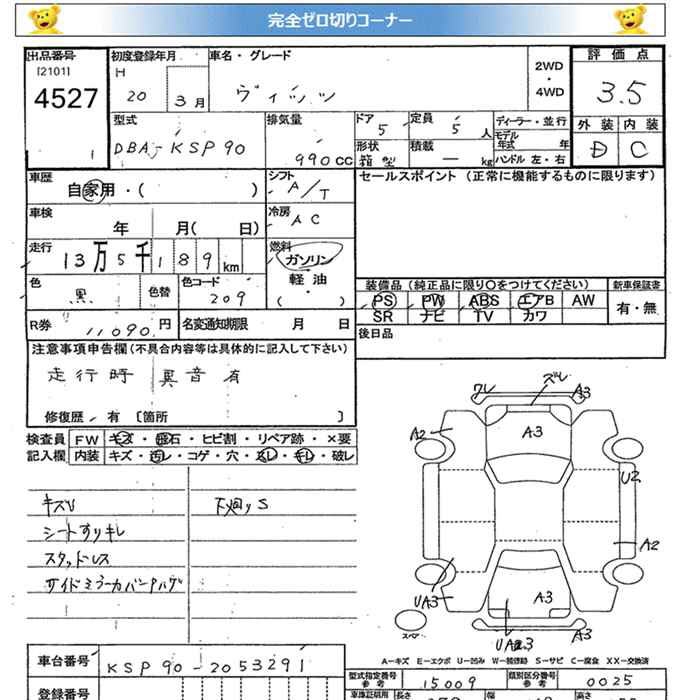 完全ゼロ切りコーナー
出品番号
[2101]
4527
1
初度登録年月
H 20 3月
車名・グレード
ヴィッツ
2WD
・
4WD
評価点
3.5
外装 内装
D C
型式
DBA-KSP90
排気量
990cc
ドア
5
定員
5人
ディーラー・並行
モデル年式 年
形状
箱型
積載
ー kg
ハンドル 左・右
車歴
自家用・( )
シフト
A/T
セールスポイント (正常に機能するものに限ります)
車検
年 月( 日)
冷房
AC
走行
13万5千189km
燃料
ガソリン
軽油
( )
色
黒
色替
色コード
209
装備品(純正品に限り○をつけてください)
新車保証書
PS PW ABS エアB AW
有・無
SR ナビ TV カワ
R券
11090円
名変通知期限 月 日
後日品
注意事項申告欄(不具合内容等は具体的に記入して下さい)
走行時 異音有
修復歴・有 [箇所 ]
検査員 FW キズ・飛石・ヒビ割・リペア跡・×要
記入欄 内装 キズ・汚レ・コゲ・穴・スレ・キレ・破レ
キズU
シートすりキレ
スタッドレス
サイドミラーカバーハゲ
下廻りS
ワレ
ズレ
A3
A3
A2
U2
A2
UA3
A3
UA3
A3
スペア
A―キズ E―エクボ U―凹み W―補修跡 S―サビ C―腐食 XX―交換済
車台番号
KSP90-2053291
型式指定番号
参考
15009
類別区分番号
参考
0025
登録番号
車庫証明用
長さ
幅
高さ